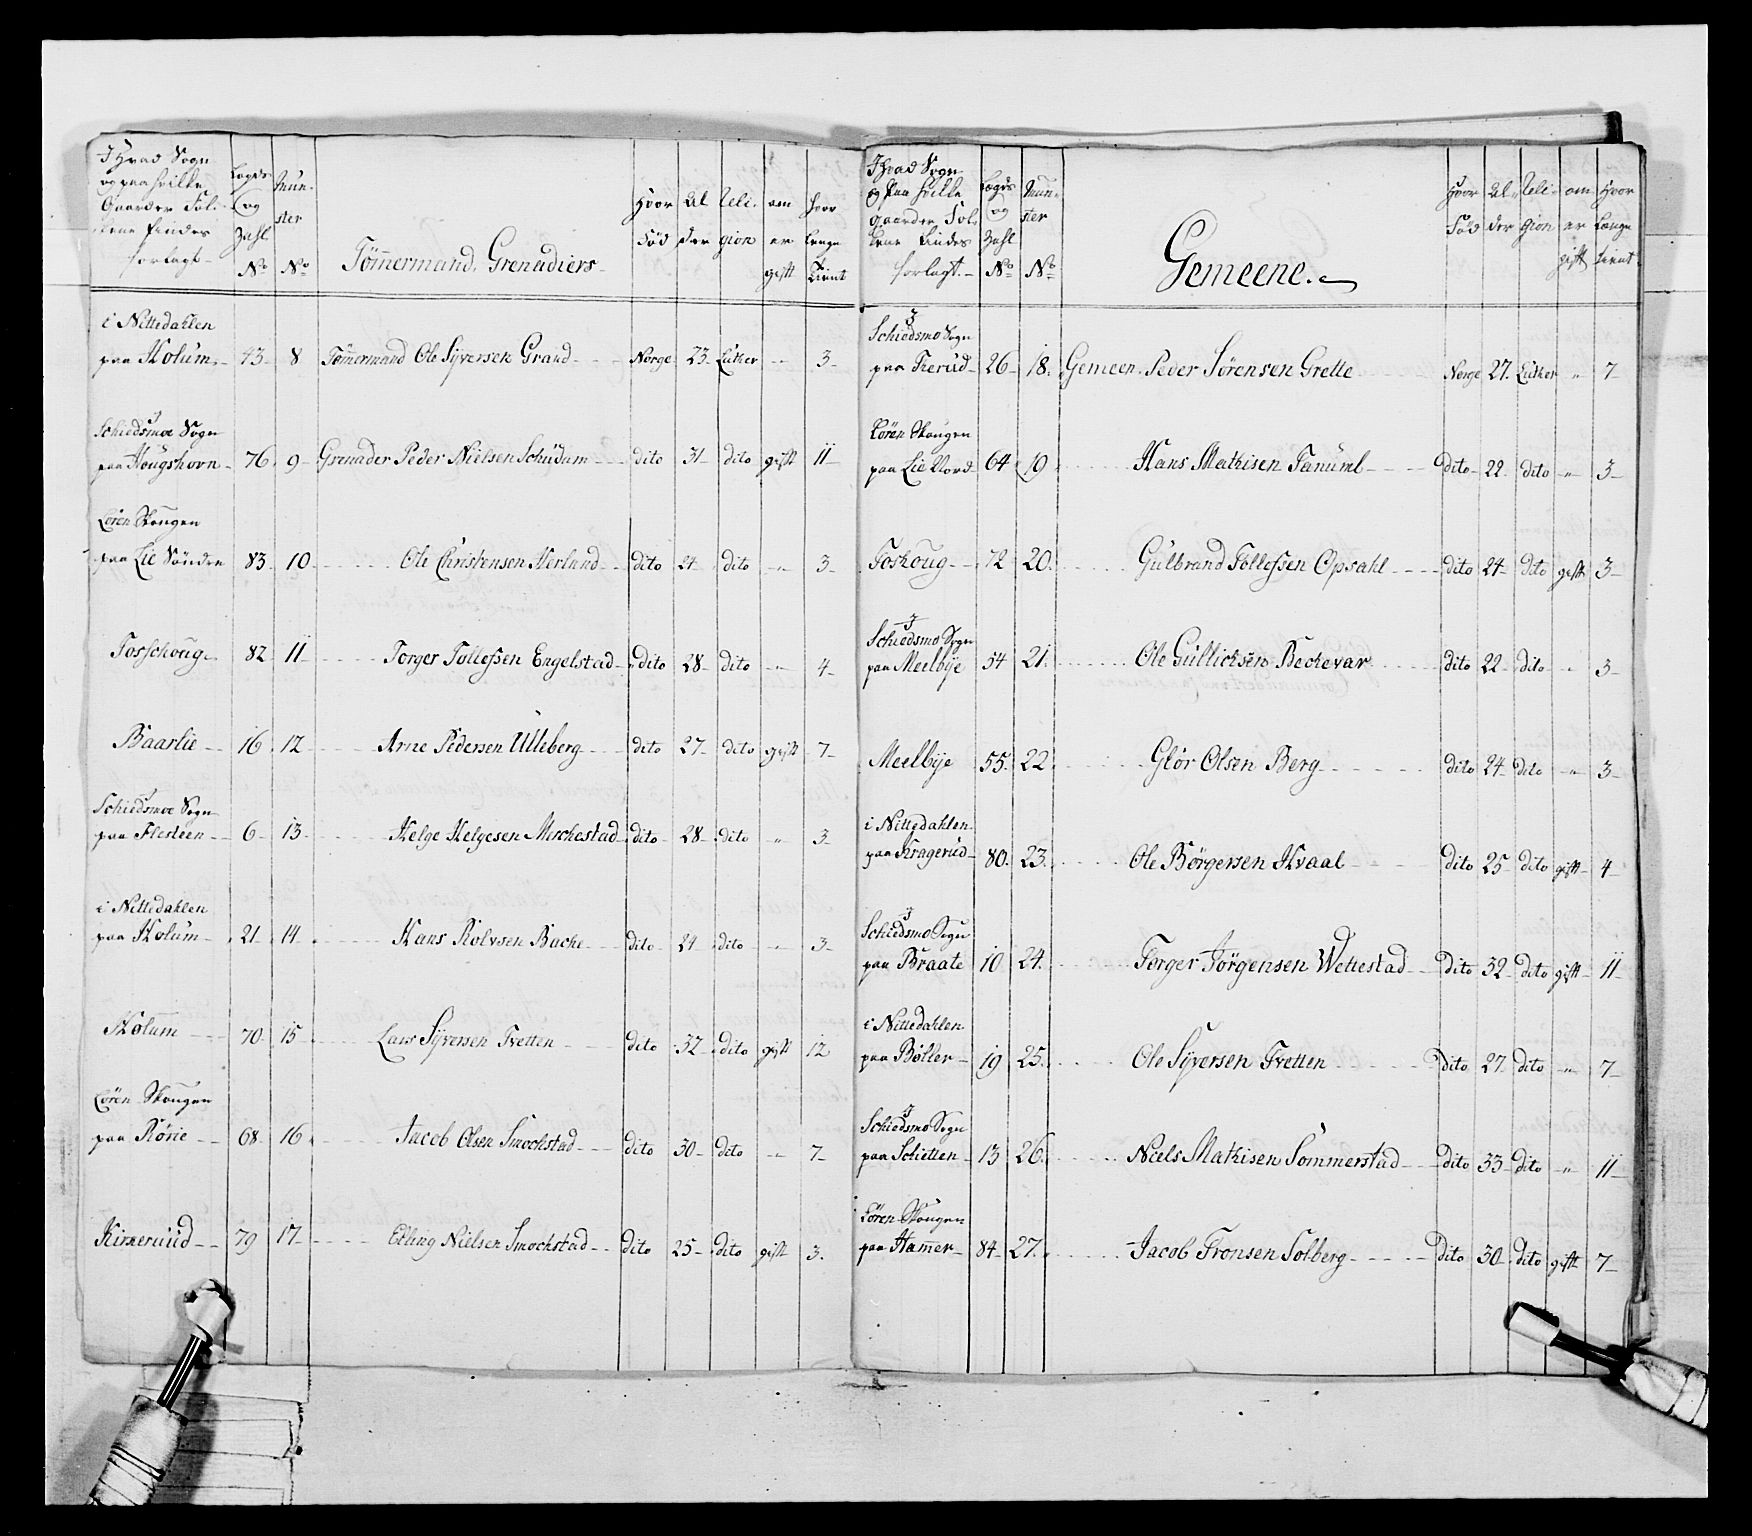 I Hvad Sogn
og paa hvilke
Gaarder Fol-
kene findes
forlagt
Lægds
og
Zahl
No
Mun-
ster
No
Tømmermand, Grenadiers
Hvor
Fød
Al
der
Reli-
gion
om
er
gift
Hvor
Længe
Tient
i Nittedahlen
paa Holum 43 8 Tømmermand Ole Syversen Grand Norge 23 Luther " 3
I
Schiedsmoe Sogn
paa Hougshorn 76 9 Grenader Peder Nielsen Schudum dito 31 dito gift 11
Lören Skougen
paa Lie Sönden 83 10 Ole Christensen Merland dito 24 dito " 3
Fosschoug 82 11 Torger Tollefsen Engelstad dito 28 dito " 4
Baarlie 16 12 Arne Pedersen Ulleberg dito 27 dito gift 7
I
Schiedsmoe Sogn
paa Flesteen 6 13 Helge Helgesen Merchestad dito 28 dito " 3
i Nittedahlen
paa Holum 21 14 Hans Rolvsen Bache dito 24 dito " 3
Holum 70 15 Lars Syversen Tvetten dito 32 dito gift 12
Lören Skougen
paa Rönie 68 16 Jacob Olsen Smochstad dito 30 dito " 7
Kirnerüüd 79 17 Elling Nielsen Smochstad dito 25 dito gift 3
I Hvad Sogn
og paa hvilke
gaarder Fol-
kene findes
forlagt
Lægds
og
Zahl
No
Mun-
ster
No
Gemeene
Hvor
Fød
Al-
der
Reli-
gion
om
er
gift
Hvor
Længe
tient
I
Schiedsmo Sogn
paa Tierud 26 18 Gemeen Peder Sörensen Grette Norge 27 Luther " 7
Lören Skougen
paa Lie Nord 64 19 Hans Mathisen Tanüml dito 22 dito " 3
Foskoug 72 20 Gulbrand Tollefsen Opsahl dito 24 dito gift 3
I
Schiedsmo Sogn
paa Meelbye 54 21 Ole Gullichsen Beckevar dito 22 dito " 3
Meelbye 55 22 Glör Olsen Berg dito 24 dito " 3
i Nittedahlen
paa Kragerud 80 23 Ole Börgersen Hvaal dito 25 dito gift 4
I
Schiedsmo Sogn
paa Braate 10 24 Torger Jörgensen Wettestad dito 32 dito gift 11
i Nittedahlen
paa Böller 19 25 Ole Syversen Tvetten dito 27 dito " 7
I
Schiedsmo Sogn
paa Schietten 13 26 Niels Mathisen Sommerstad dito 33 dito " 11
Lören Skougen
paa Hamer 84 27 Jacob Tronsen Solberg dito 30 dito gift 7